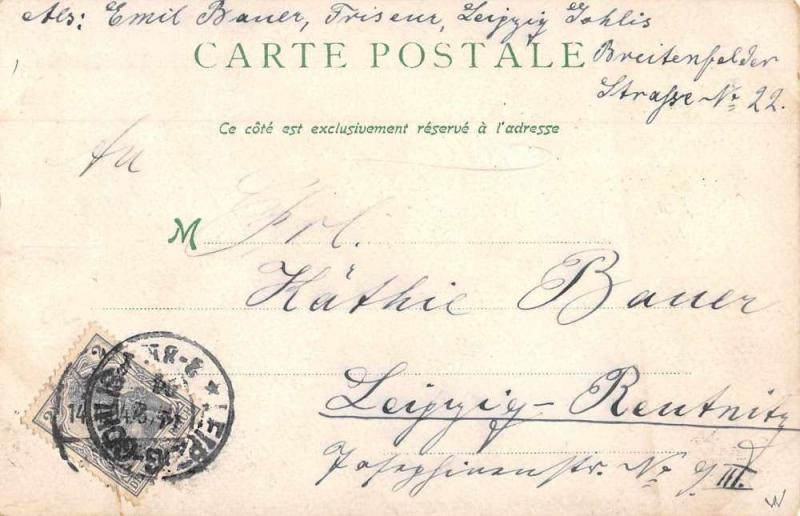 Abs: Emil Bauer, Friseur, Leipzig Gohlis
Breitenfelder
Strasse No 22.
CARTE POSTALE
Ce côté est exclusivement réservé à l'adresse
An
M Frl.
Käthie Bauer
Leipzig-Reutnitz
Josephinenstr. No III.
2
W